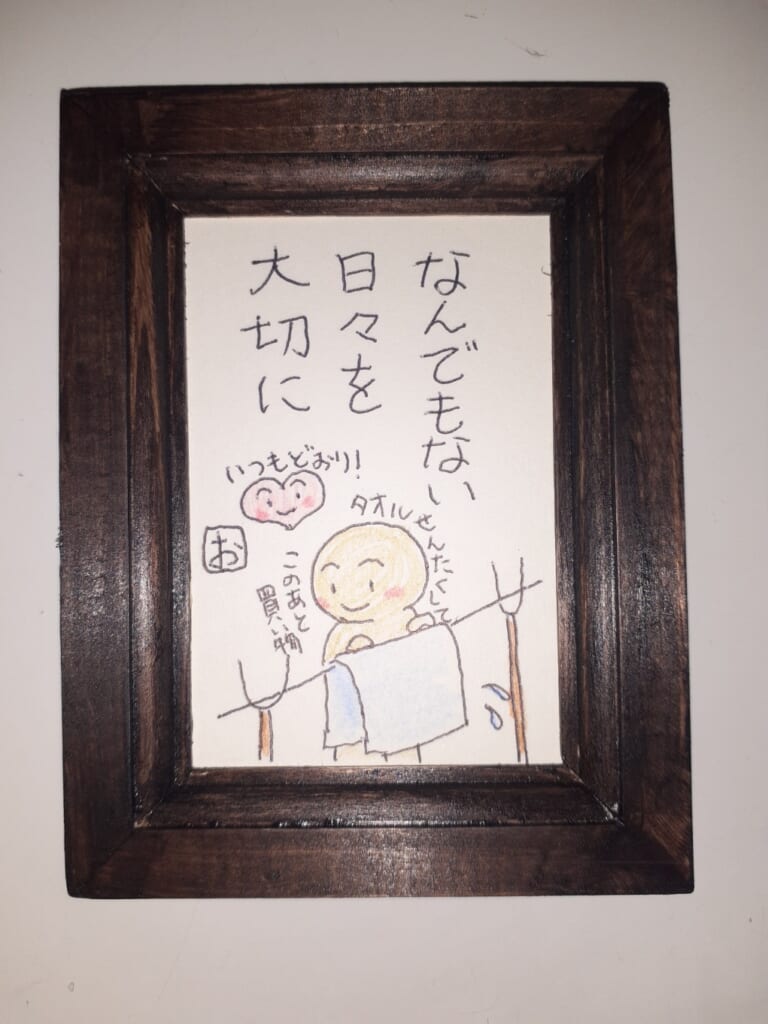 なんでもない
日々を
大切に
いつもどおり!
タオルせんたくして
このあと
買い物
お